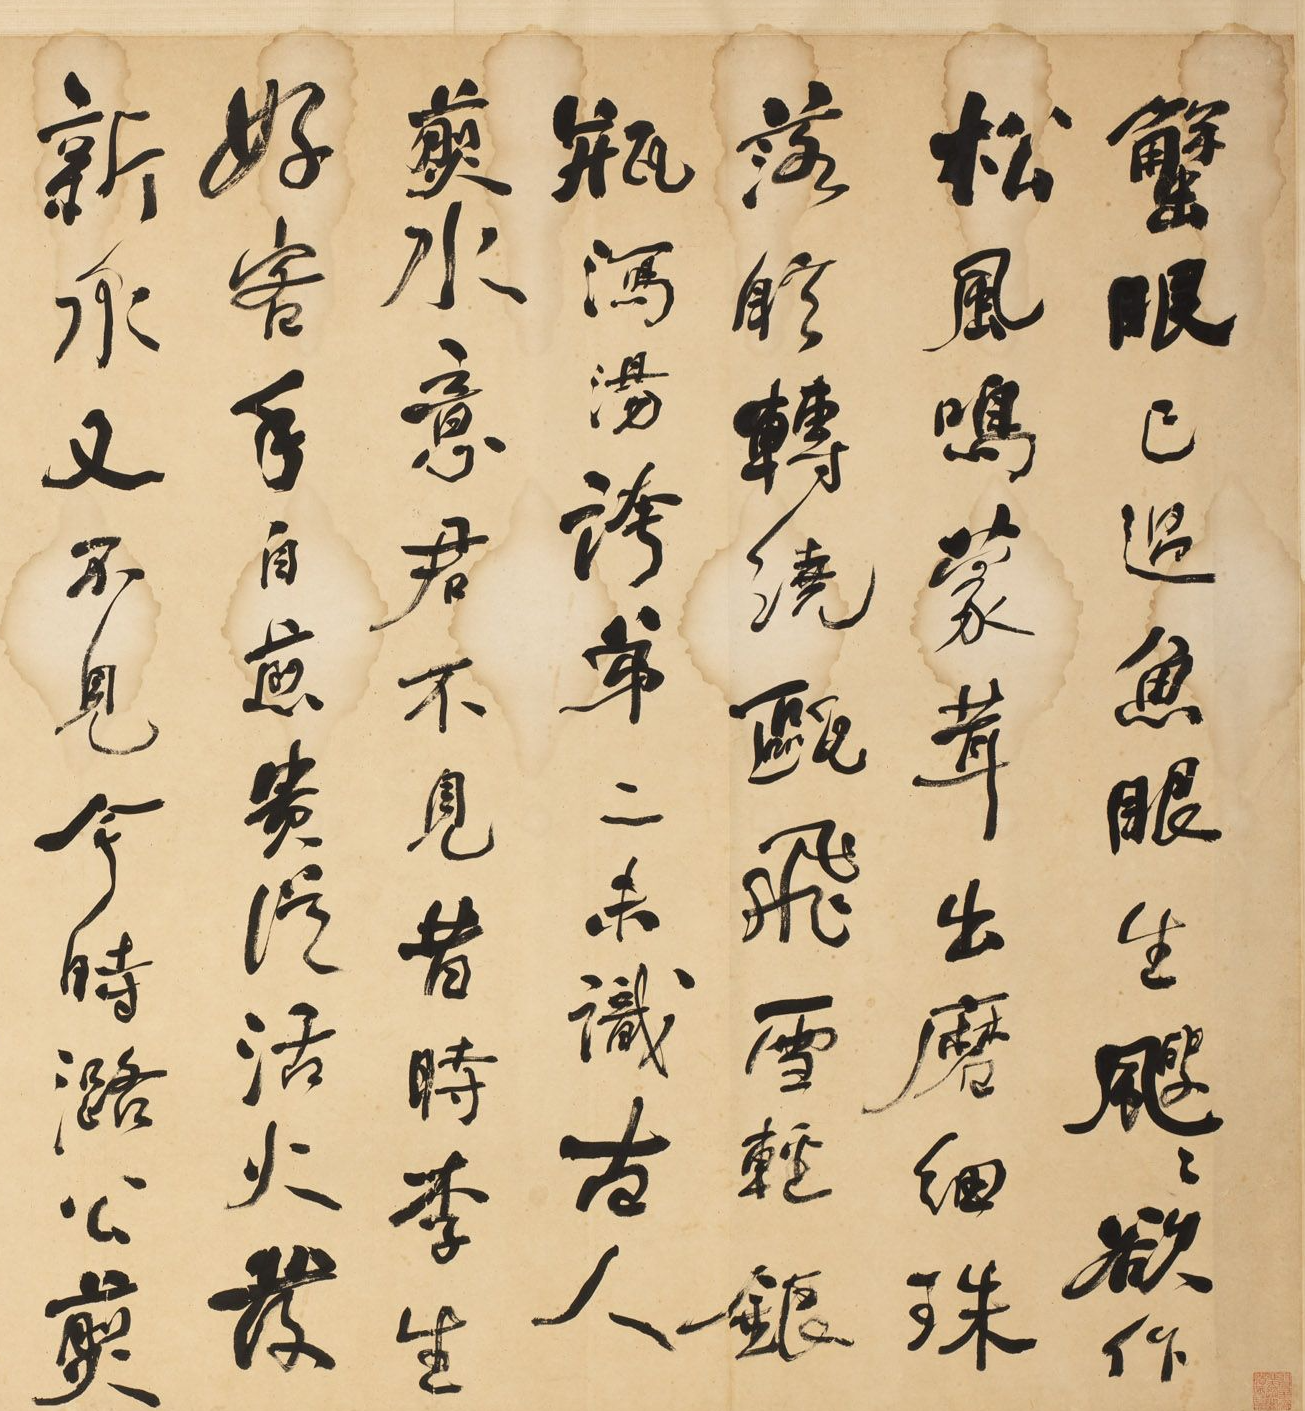 蟹眼已過魚眼生颼〻欲作
松風鳴蒙茸出磨細珠
落眩轉繞甌飛雪輕銀
瓶瀉湯誇第二未識古人
煎水意君不見昔時李生
好客手自煎貴從活火發
新泉又不見今時潞公煎